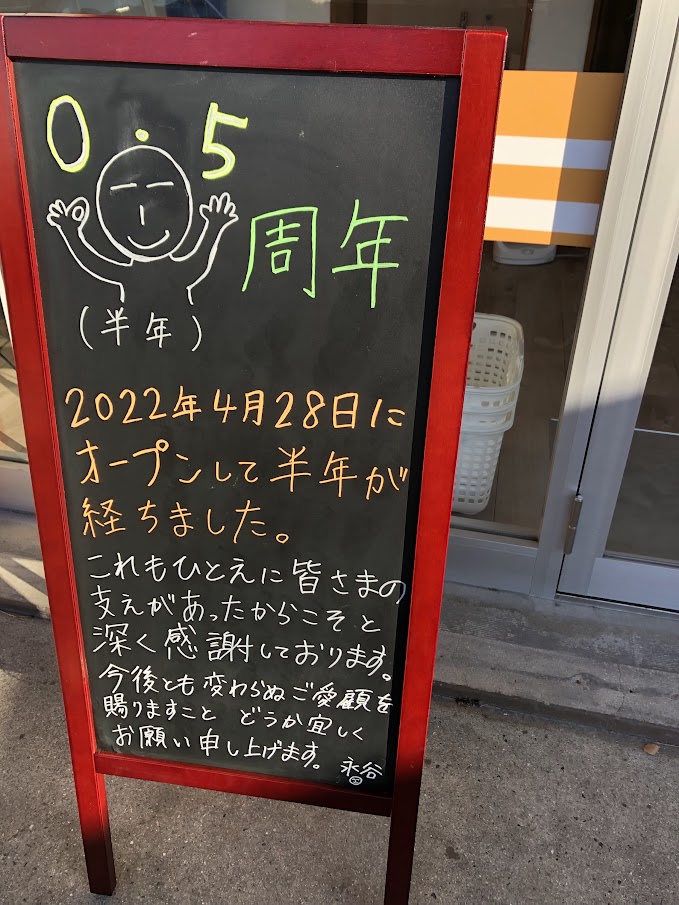 0.5
周年
(半年)
2022年4月28日に
オープンして半年が
経ちました。
これもひとえに皆さまの
支えがあったからこそと
深く感謝しております。
今後とも変わらぬご愛顧を
賜りますこと どうか宜しく
お願い申し上げます。
永谷